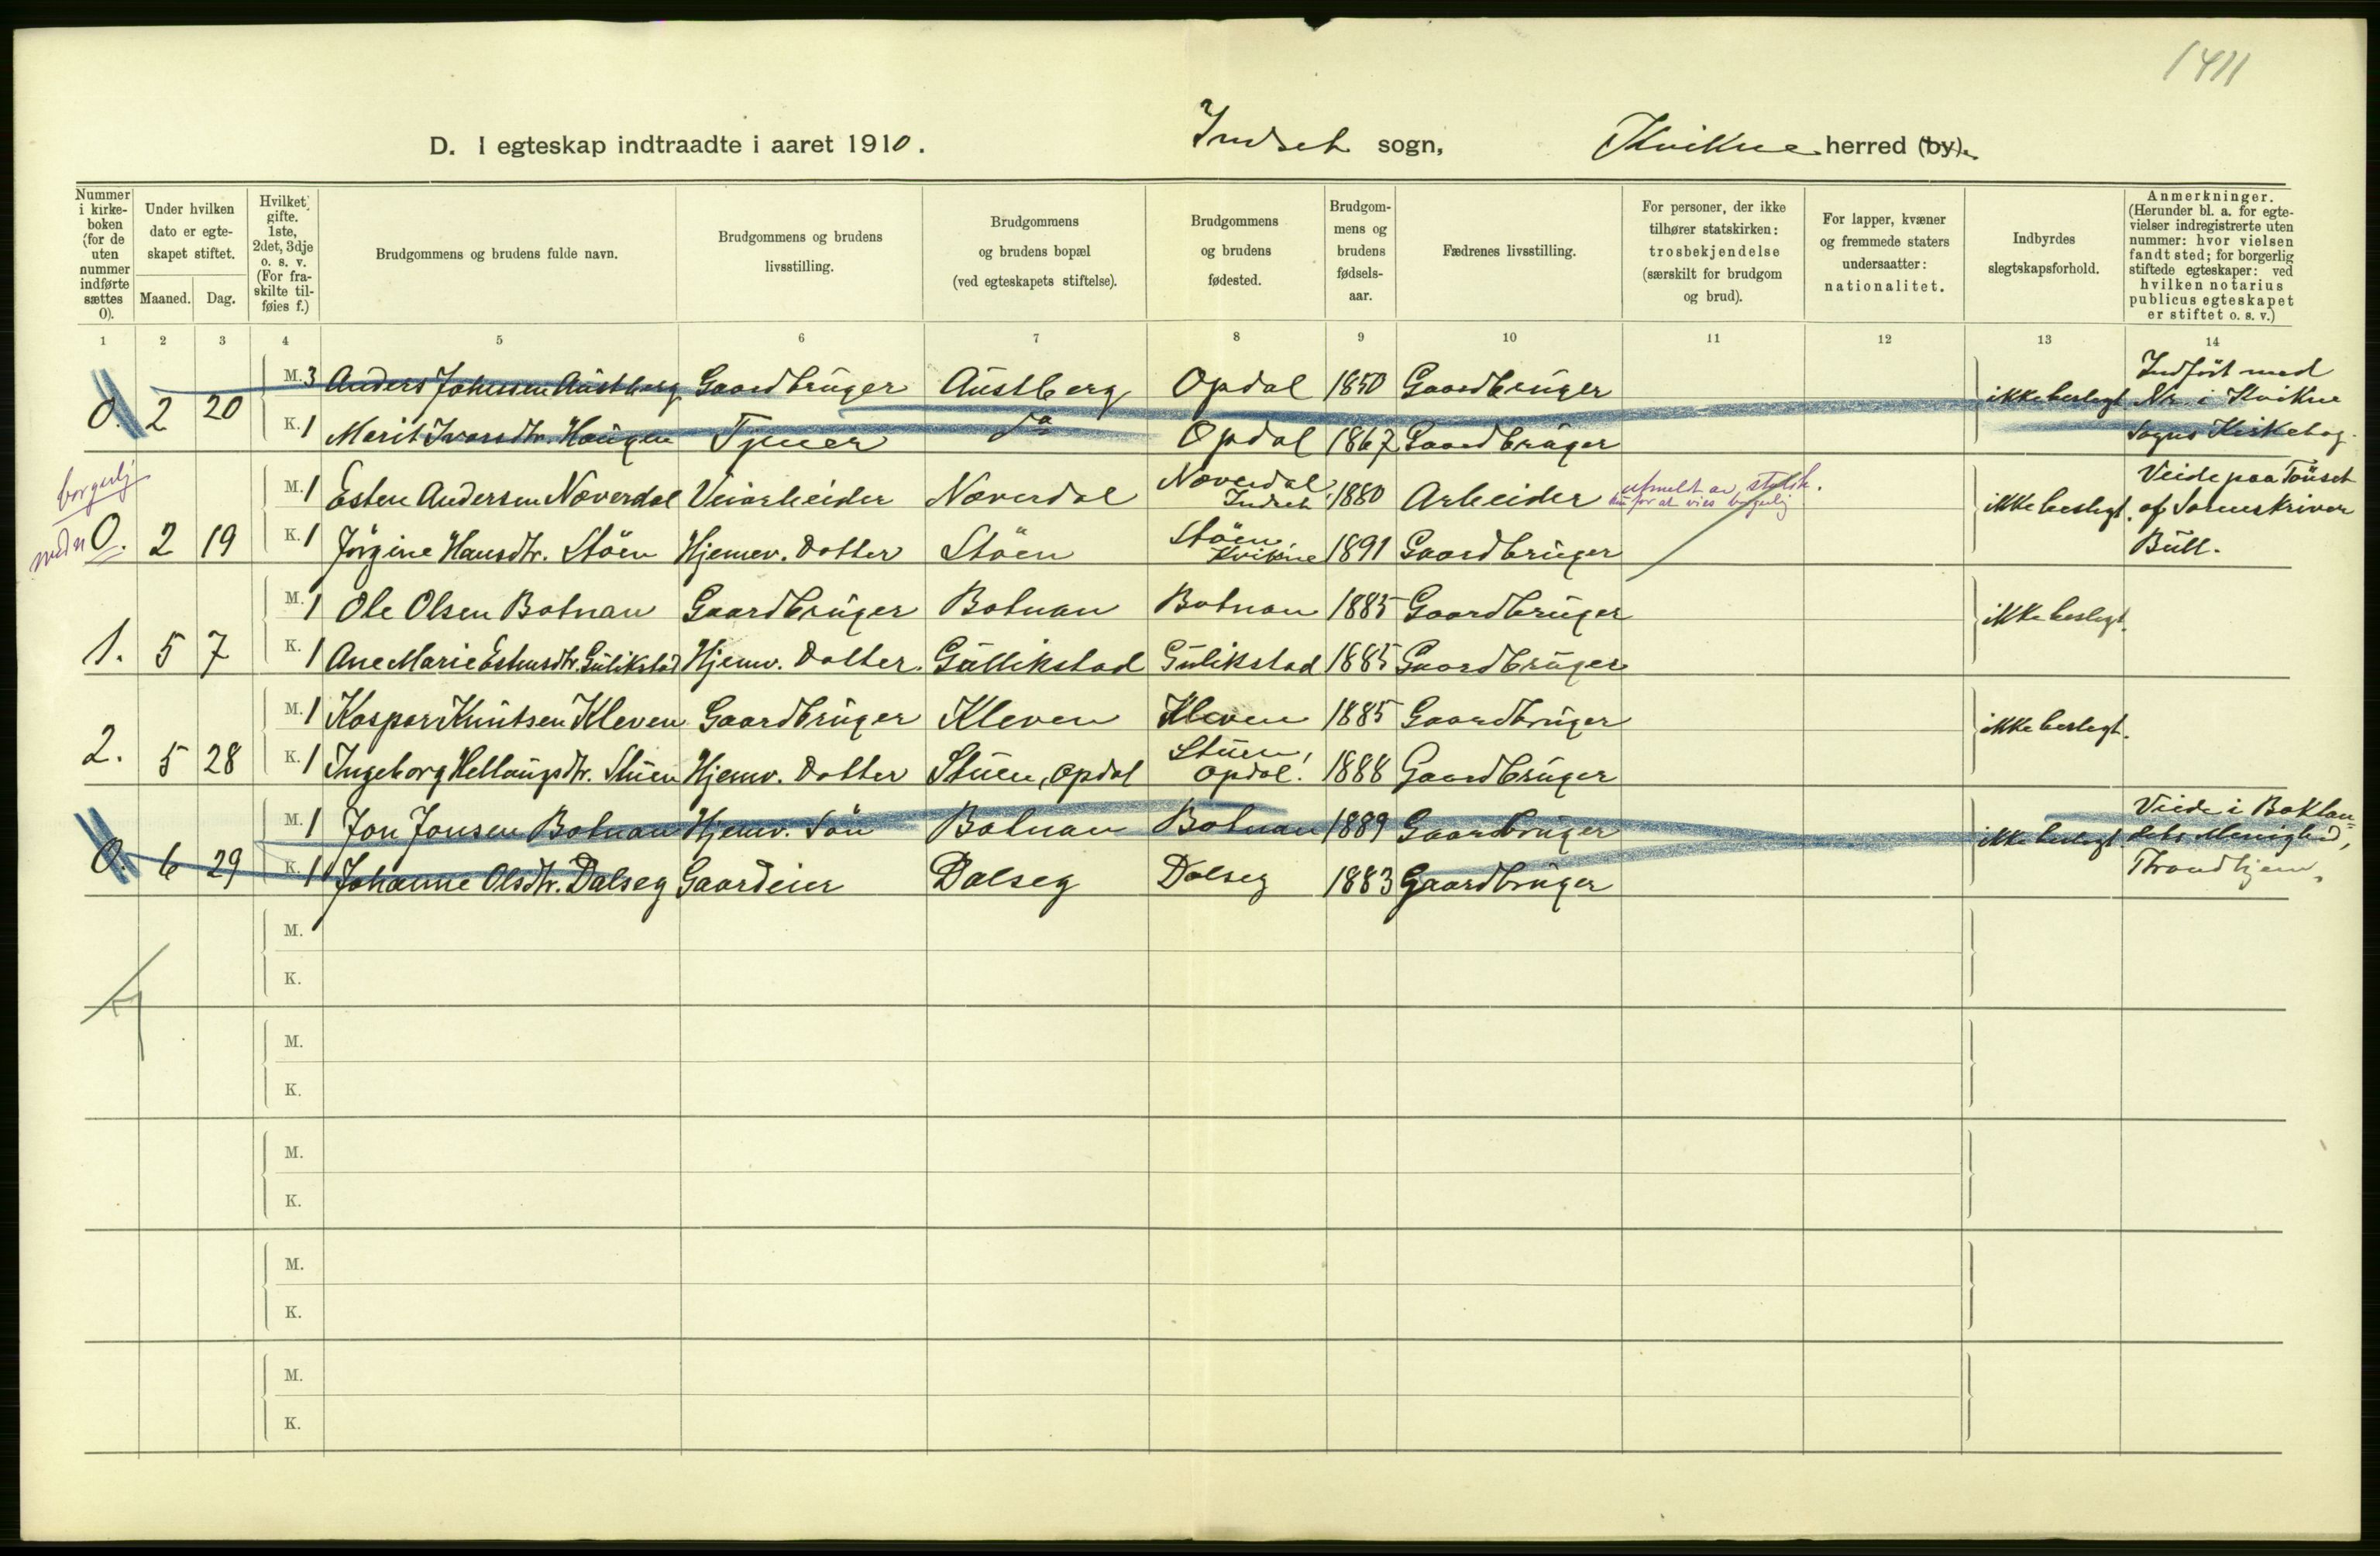 1411
D. I egteskap indtraadte i aaret 1910. Indset sogn, Kvikne herred (by).
Nummer i kirke-boken (for de uten nummer indførte sættes 0).
Under hvilken dato er egte-skapet stiftet.
Maaned. Dag.
Hvilket gifte. 1ste, 2det, 3dje o. s. v. (For fra-skilte til-føies f.)
Brudgommens og brudens fulde navn.
Brudgommens og brudens livsstilling.
Brudgommens og brudens bopæl (ved egteskapets stiftelse).
Brudgommens og brudens fødested.
Brudgom-mens og brudens fødsels-aar.
Fædrenes livsstilling.
For personer, der ikke tilhører statskirken: trosbekjendelse (særskilt for brudgom og brud).
For lapper, kvæner og fremmede staters undersaatter: nationalitet.
Indbyrdes slegtskapsforhold.
Anmerkninger. (Herunder bl. a. for egte-vielser indregistrerte uten nummer: hvor vielsen fandt sted; for borgerlig stiftede egteskaper: ved hvilken notarius publicus egteskapet er stiftet o. s. v.)
1 2 3 4 5 6 7 8 9 10 11 12 13 14
0. 2 20 M. 3 Anders Johnsen Austberg Gaardbrüger Aüstberg Opdal 1850 Gaardbrüger ikke beslegt. Indført med Nr. i Kvikne Sogns Kirkebog.
K. 1 Marit Ivarsdtr. Haügen Tjener do Opdal 1867 Gaardbrüger
borgerlig
0. 2 19 M. 1 Esten Andersen Næverdal Veiarbeider Næverdal Næverdal, Indset 1880 Arbeider utmeldt av statsk. kun for at vies borgerlig ikke beslegt. Viede paa Tönset af Sorenskriver Büll.
K. 1 Jörgine Hansdtr. Stöen Hjemv. Datter Stöen Stöen, Kvikne 1891 Gaardbrüger
1. 5 7 M. 1 Ole Olsen Botnan Gaardbrüger Botnan Botnan 1885 Gaardbrüger ikke beslegt.
K. 1 Ane Marie Estensdtr. Gülikstad Hjemv. Datter. Güllikstad Gülikstad 1885 Gaardbrüger
2. 5 28 M. 1 Kaspar Knütsen Kleven Gaardbrüger Kleven Kleven 1885 Gaardbrüger ikke beslegt.
K. 1 Ingeborg Hellaugsdtr. Stüen Hjemv. Datter Stüen, Opdal Stüen, Opdal. 1888 Gaardbrüger
0. 6 29 M. 1 Jon Jonsen Botnan Hjemv. Sön Botnan Botnan 1889 Gaardbrüger ikke beslegt. Viede i Baklandets Menighed, Throndhjem.
K. 1 Johanne Olsdtr. Dalseg Gaardeier Dalseg Dalseg 1883 Gaardbrüger
M.
K.
M.
K.
M.
K.
M.
K.
M.
K.